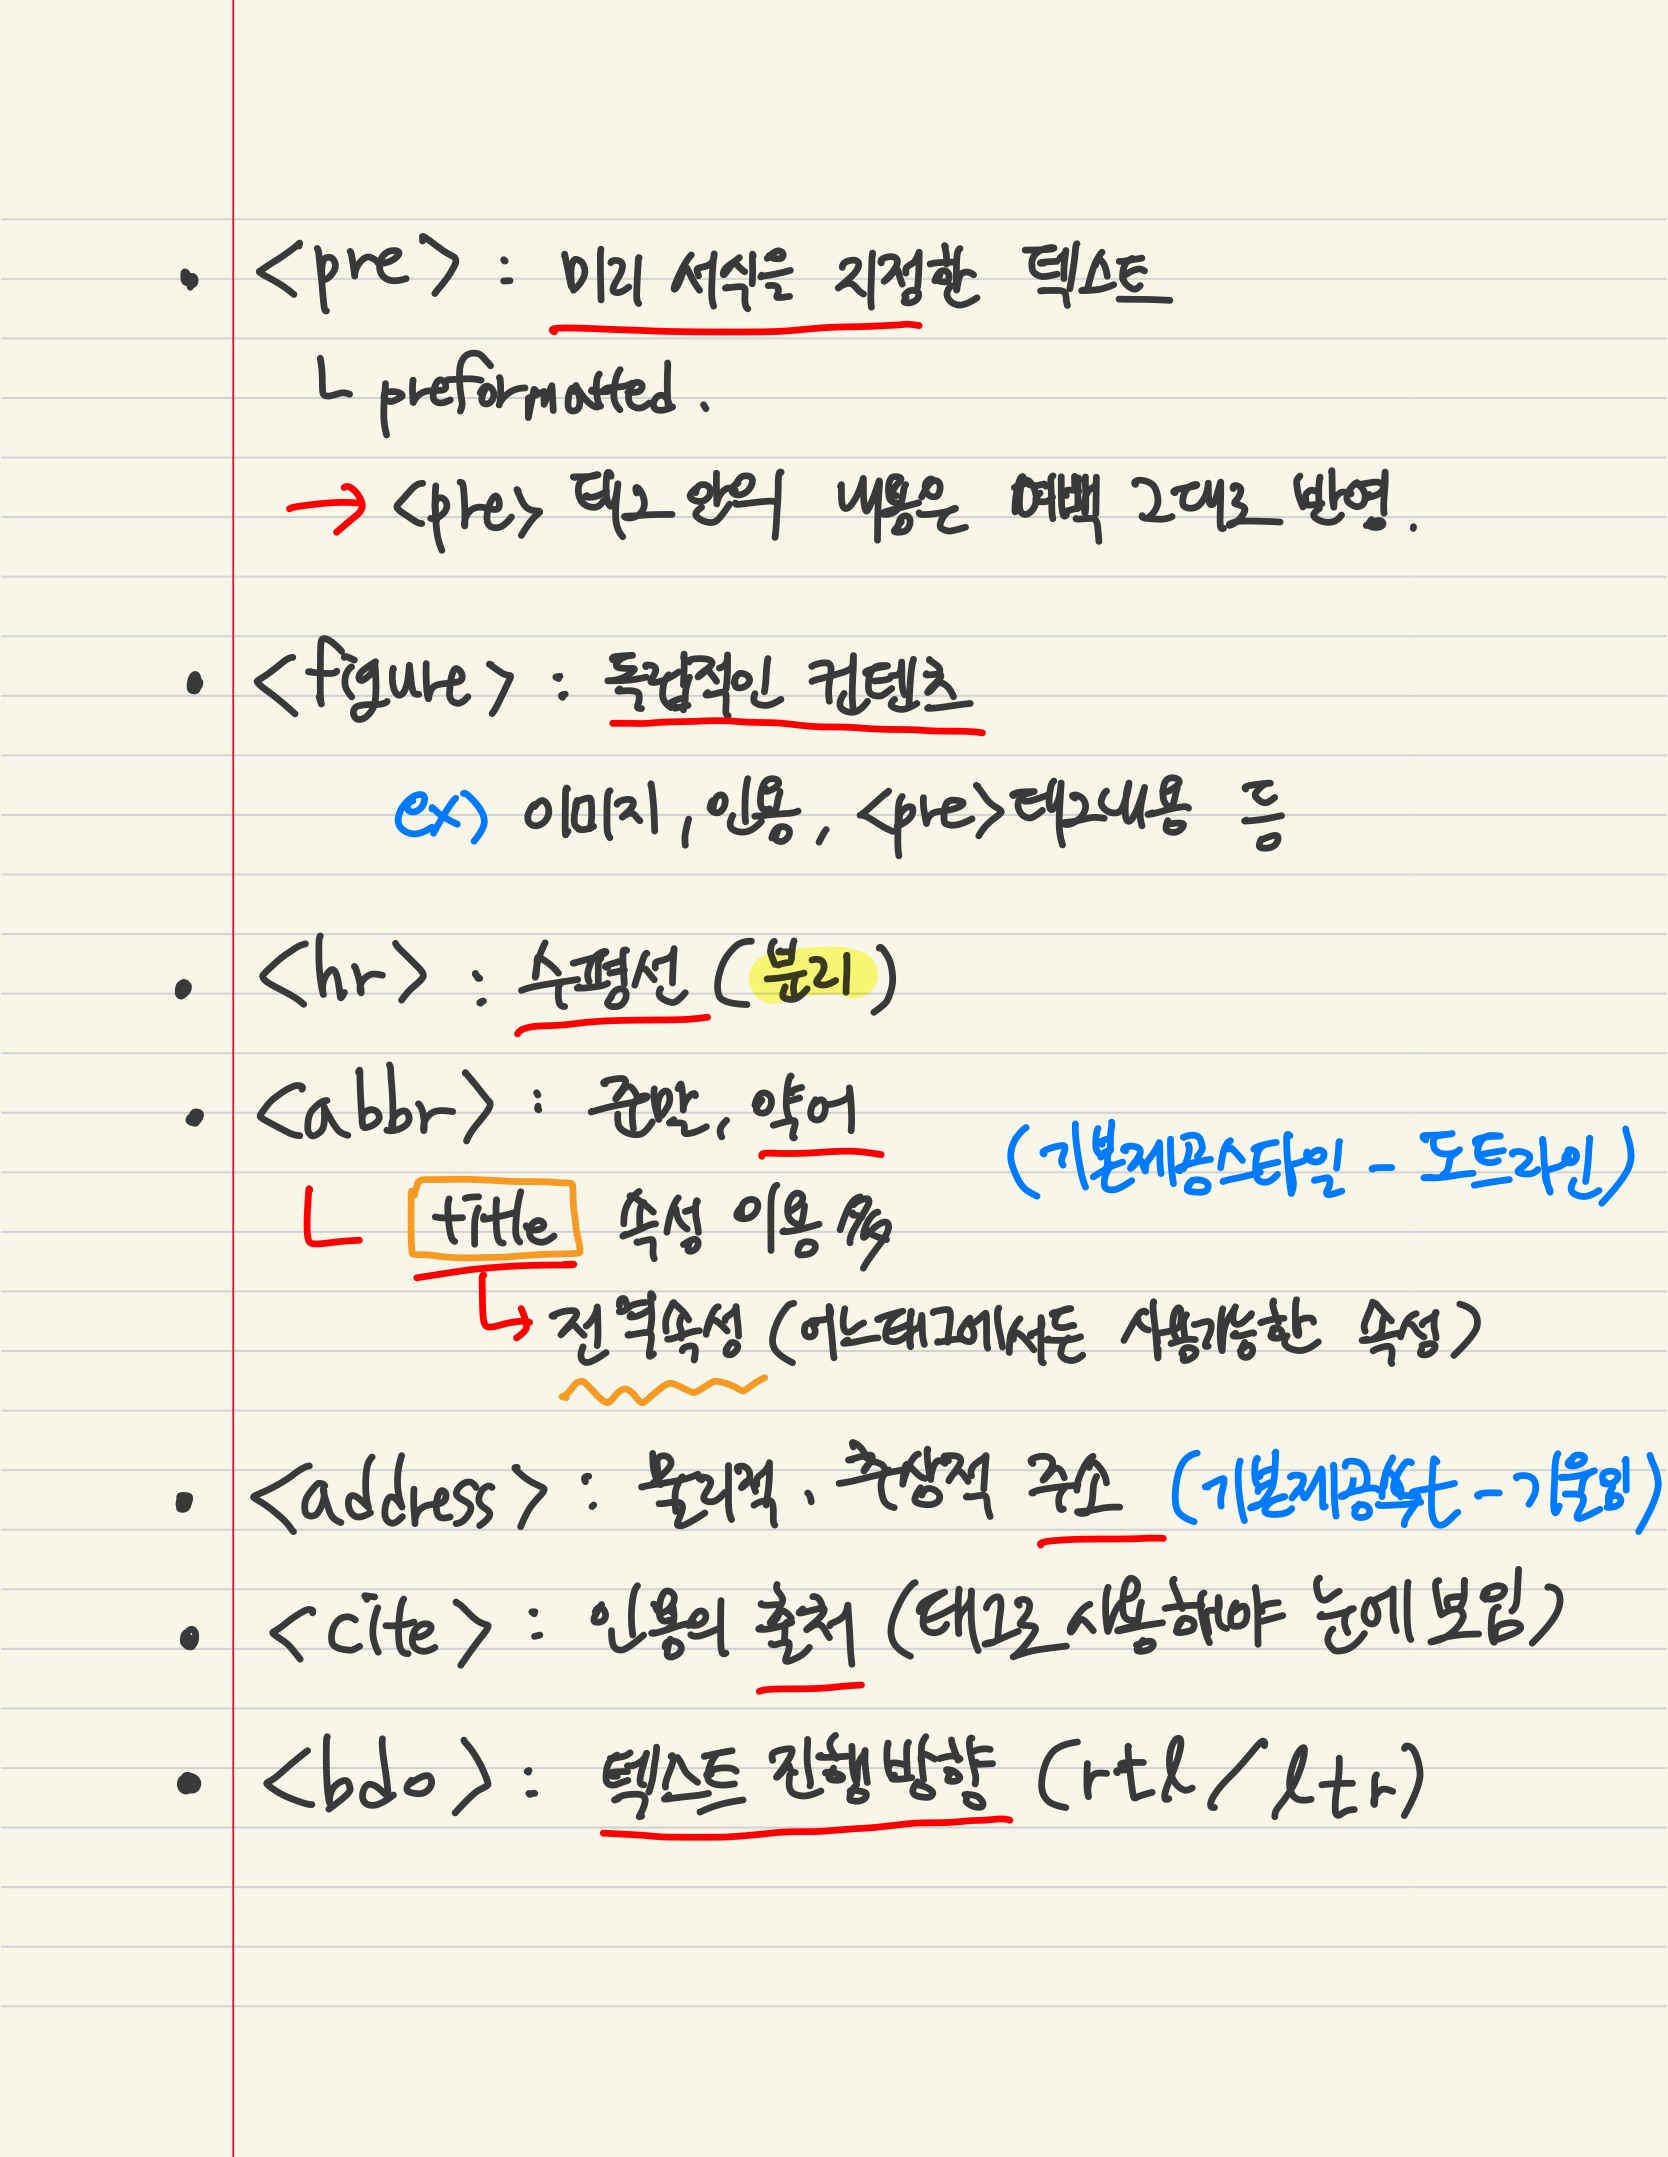 • <pre> : 미리 서식을 지정한 텍스트
└ preformatted.
→ <pre> 태그 안의 내용은 여백 그대로 반영.
• <figure> : 독립적인 컨텐츠
ex) 이미지, 인용, <pre>태그내용 등
• <hr> : 수평선 (분리)
• <abbr> : 준말, 약어
(기본제공스타일 - 도트라인)
└ title 속성 이용
↳ 전역속성 (어느태그에서든 사용가능한 속성)
• <address> : 물리적, 추상적 주소 (기본제공 - 기울임)
• <cite> : 인용의 출처 (태그로 사용해야 눈에 보임)
• <bdo> : 텍스트 진행 방향 (rtl / ltr)